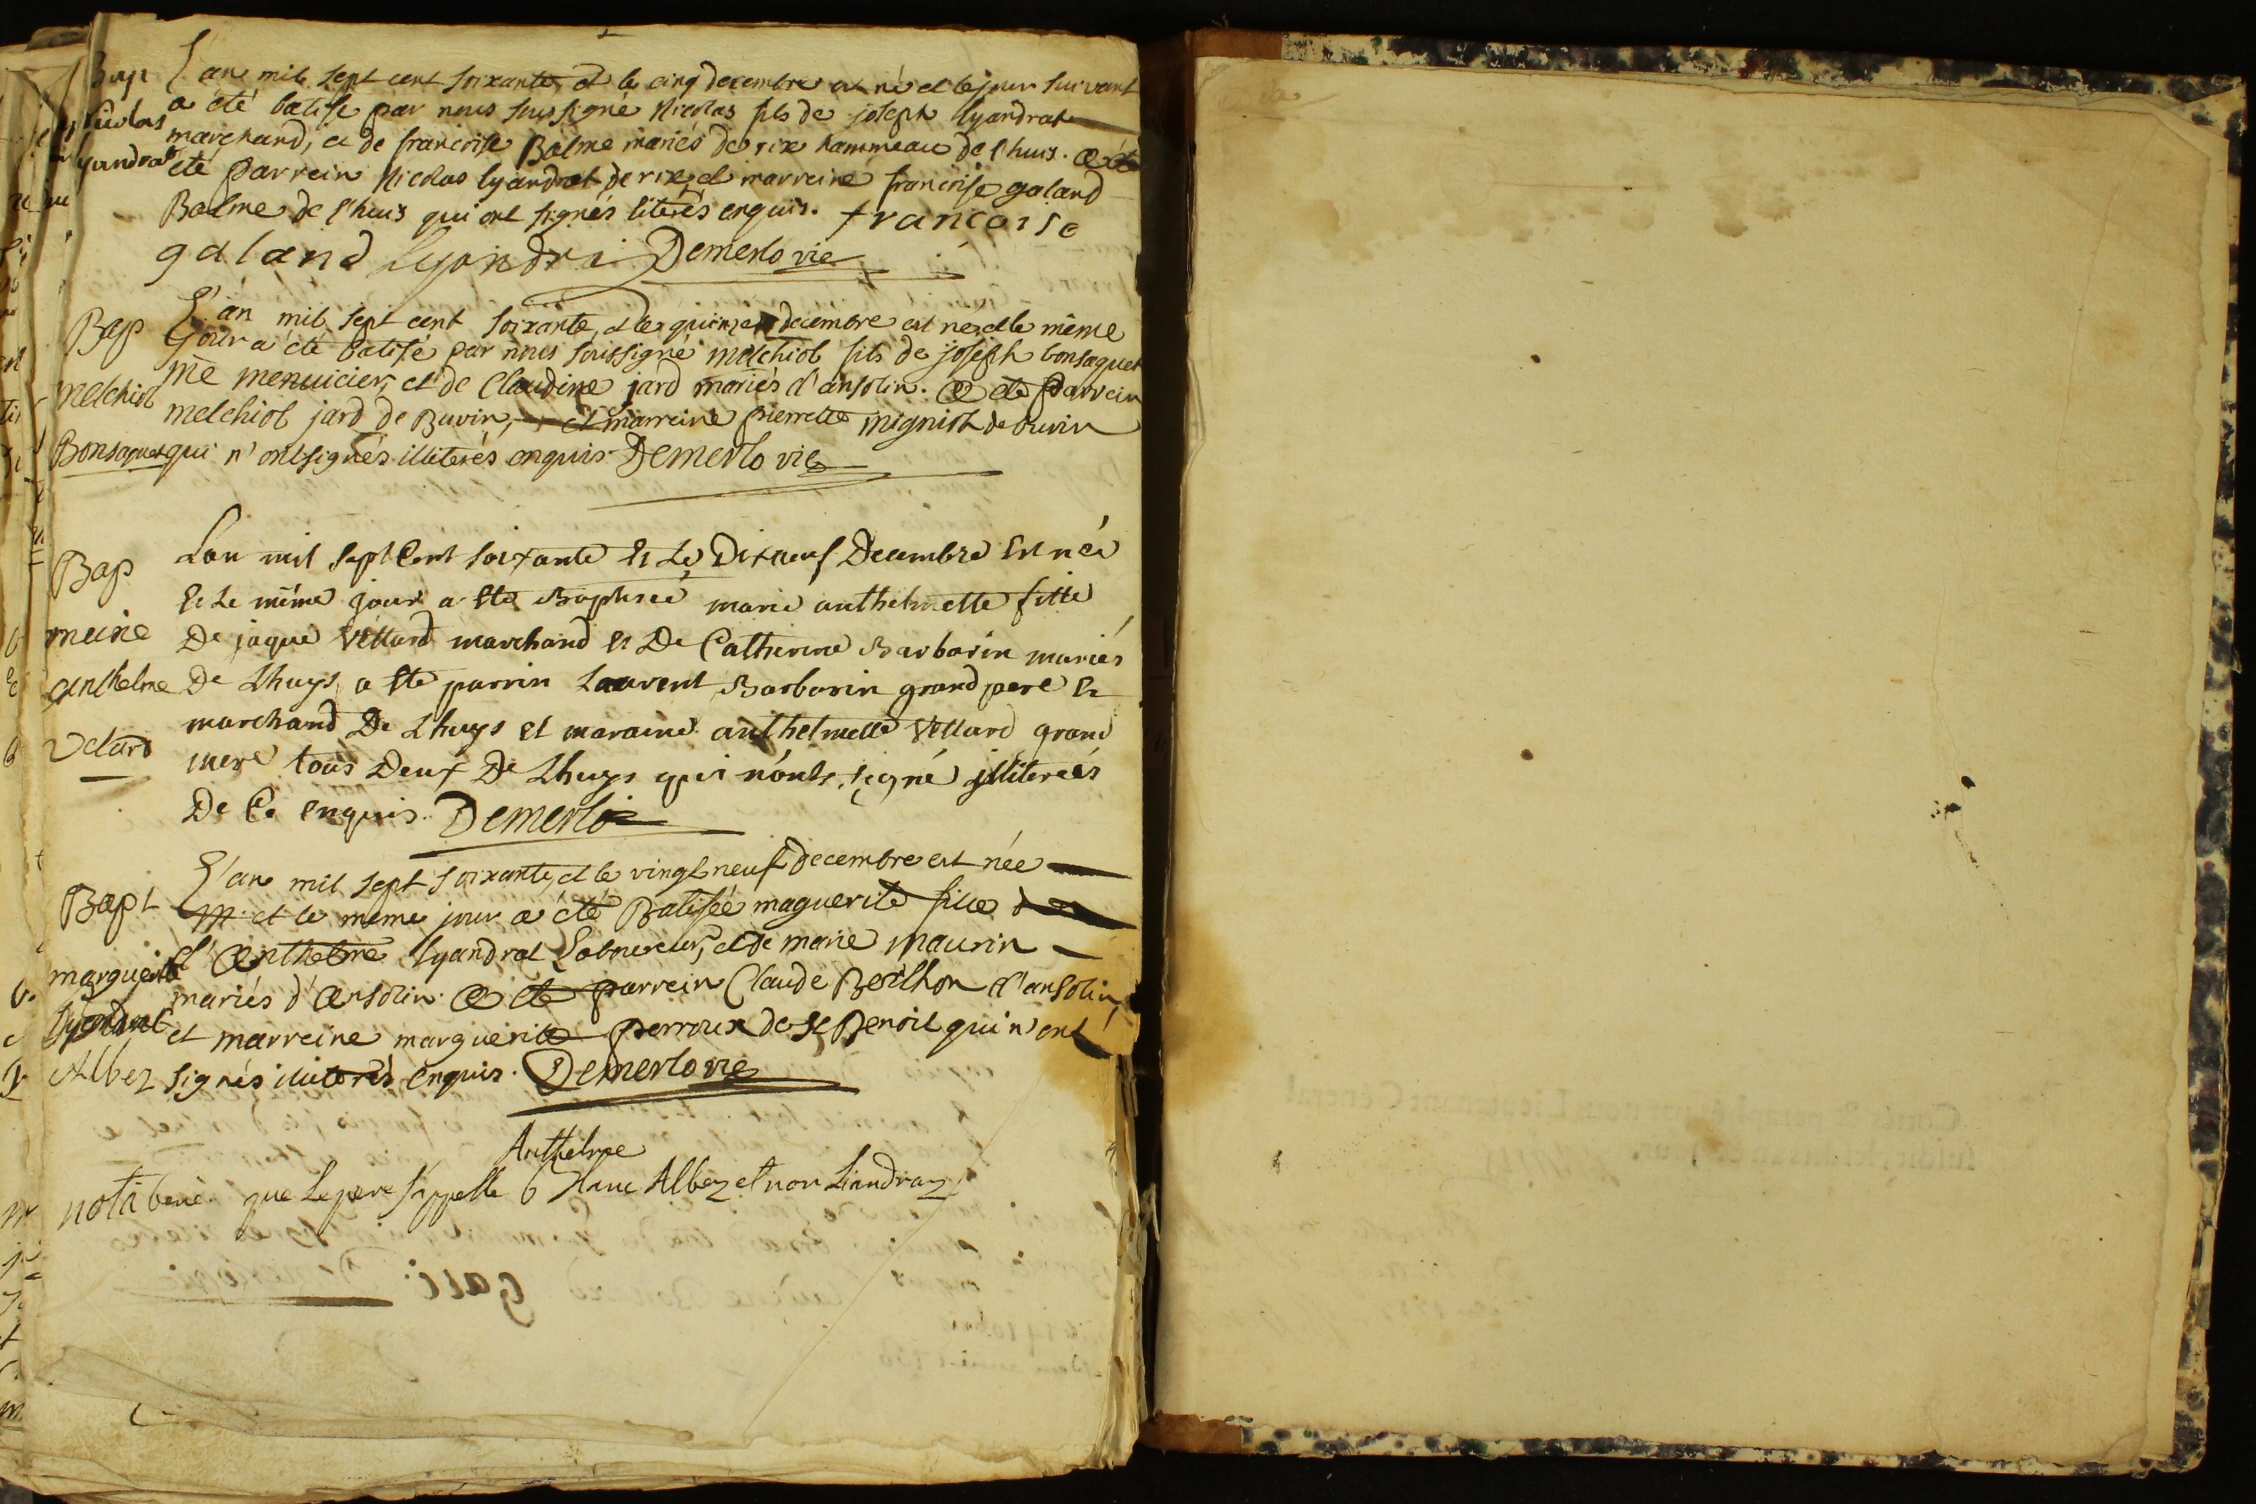 Bap
Nicolas
lyandrat
L'an mil sept cent soixante, et le cinq decembre est né et le jour suivant
a été batisé par nous sussigné Nicolas fils de joseph lyandrat
marchand, et de francoise Balme mariés de rix hammeau de l'huis. a été
été parrein Nicolas lyandrat de rix, et marreine francoise galand
Balme de l'huis qui ont signés literés enquis. francoise
galand lyandra Demerlo vic
Bap
melchiol
Bonsaquet
L'an mil sept cent soixante, et le quinze decembre est né, et le même
jour a été batisé par nous soussigné melchiol fils de joseph bonsaquet
me menuicier, et de Claudine jard mariés d'ansolin. a été parrein
melchiol jard de Buvin, et marreine pierrette migniot de buvin
qui n'ont signés illiterés enquis. Demerlo vic
Bap
marie
anthelme
Velard
Lan mil sept Cent soixante Et Le Dixneuf Decembre Est née
Et Le même jour a Eté Baptisée marie anthelmette fille
De jaque Vellard marchand Et De Catherine Barbarin mariés
De Lhuys, a Eté parrin Laurent Barbarin grand pere Et
marchand De Lhuys et maraine anthelmette Vellard grand
mere tous Deux De Lhuys qui n'onts signé illiterés
De Ce enquis. Demerlo
Bapt
marguerite
lyandrat
Albez
L'an mil sept soixante, et le vingt neuf decembre est née
et le même jour a été Batisée maguerite fille
d'Anthelme lyandrat Laboureur, et de marie maurin
mariés d'Ansolin. a été parrein Claude Berlhon d'ansolin,
et marreine marguerite perroux de st Benoit qui n'ont
signés illiterés enquis. Demerlo vic
Anthelme
nota bene que Le pere s'appelle Albez et non Liandraz